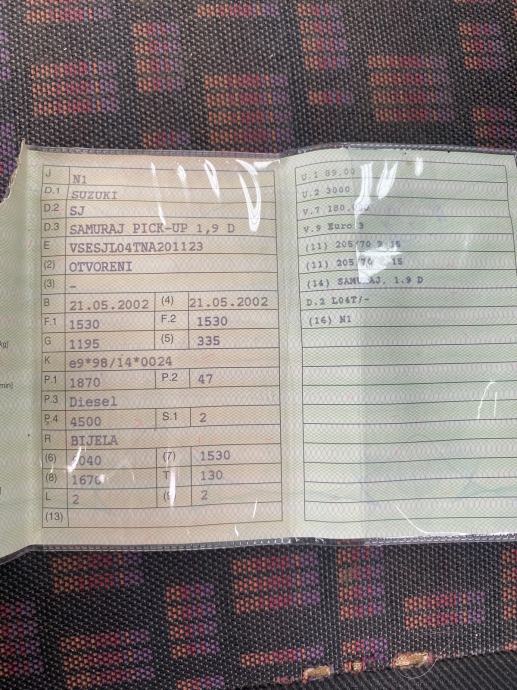 J N1
D.1 SUZUKI
D.2 SJ
D.3 SAMURAJ PICK-UP 1,9 D
E VSESJL04TNA201123
(2) OTVORENI
(3) -
B 21.05.2002 (4) 21.05.2002
F.1 1530 F.2 1530
G 1195 (5) 335
K e9*98/14*0024
P.1 1870 P.2 47
P.3 Diesel
P.4 4500 S.1 2
R BIJELA
(6) 4040 (7) 1530
(8) 1670 T 130
L 2 (9) 2
(13)
U.1 89.00
U.2 3000
V.7
V.9 Euro 3
(11) 205/70 R 15
(11) 205/70 R 15
(14) SAMURAJ. 1.9 D
D.2 L04T/-
(16) N1